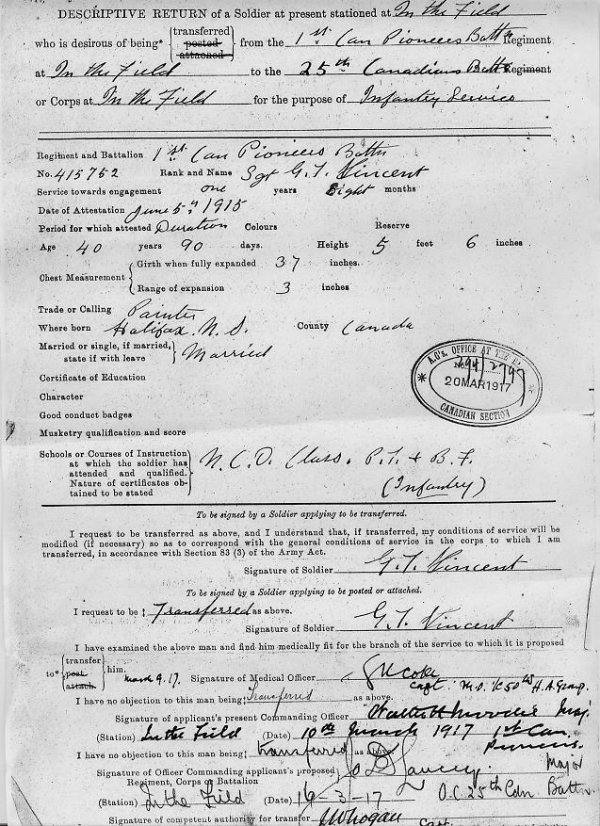 DESCRIPTIVE RETURN of a Soldier at present stationed at In the Field
who is desirous of being* {transferred posted attached} from the 1st Can Pioneers Battn Regiment
at In the Field to the 25th Canadians Battn Regiment
or Corps at In the Field for the purpose of Infantry Service
Regiment and Battalion 1st Can Pioneers Battn
No. 415752 Rank and Name Sgt G. T. Vincent
Service towards engagement one years Eight months
Date of Attestation June 5th 1915
Period for which attested Duration Colours Reserve
Age 40 years 90 days. Height 5 feet 6 inches
Chest Measurement { Girth when fully expanded 37 inches.
Range of expansion 3 inches
Trade or Calling Painter
Where born Halifax, N.S. County Canada
Married or single, if married, state if with leave } Married
Certificate of Education
Character
Good conduct badges
Musketry qualification and score
A.G's. OFFICE AT THE
20 MAR 1917
CANADIAN SECTION
Schools or Courses of Instruction
at which the soldier has
attended and qualified.
Nature of certificates ob-
tained to be stated
N.C.O. Class. P.T. + B.F.
(Infantry)
To be signed by a Soldier applying to be transferred.
I request to be transferred as above, and I understand that, if transferred, my conditions of service will be
modified (if necessary) so as to correspond with the general conditions of service in the corps to which I am
transferred, in accordance with Section 83 (3) of the Army Act.
Signature of Soldier G.T. Vincent
To be signed by a Soldier applying to be posted or attached.
I request to be ‡ Transferred as above.
Signature of Soldier G. T. Vincent
I have examined the above man and find him medically fit for the branch of the service to which it is proposed
to* {transfer post attach} him.
March 9.17. Signature of Medical Officer
Capt. M.O. 50th H.A. Group.
I have no objection to this man being transferred as above.
Signature of applicant's present Commanding Officer Maj.
(Station) In the Field (Date) 10th March 1917 1st Can. Pioneers.
I have no objection to this man being transferred as above
Signature of Officer Commanding applicant's proposed Major
Regiment, Corps or Battalion
O.C. 25th Cdn Battn.
(Station) In the Field (Date) 16-3-17
Signature of competent authority for transfer